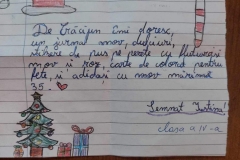 De Crăciun îmi doresc,
un jurnal mov, dulciuri,
de pus pe perete cu fluturași
mov și roz, carte de colorat pentru
fete, și adidași cu mov mărimea
35.
Semnat Iustina!
clasa a IV-a